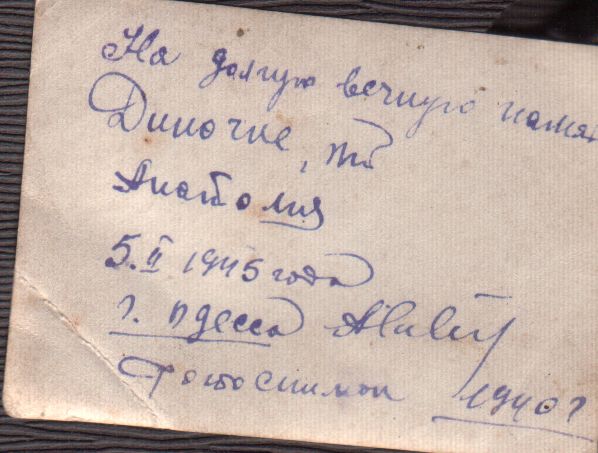 На долгую вечную памят
Диночке, от
Анатолия
5.II 1945 года
г. Одесса
Фотоснимок 1940г